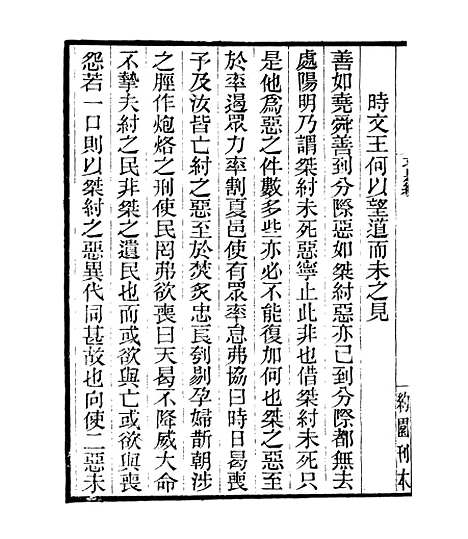 時文王何以望道而未之見
善如堯舜善到分際惡如桀紂惡亦已到分際都無去
處陽明乃謂桀紂未死惡寧止此非也借桀紂未死只
是他爲惡之件數多些亦必不能復加何也桀之惡至
於率遏眾力率割夏邑使有眾率怠弗協曰時日曷喪
予及汝皆亡紂之惡至於焚炙忠良刳剔孕婦斮朝涉
之脛作炮烙之刑使民罔弗欲喪曰天曷不降威大命
不摯夫紂之民非桀之遺民也而或欲與亡或欲與喪
怨若一口則以桀紂之惡異代同甚故也向使二惡未
約園刊本